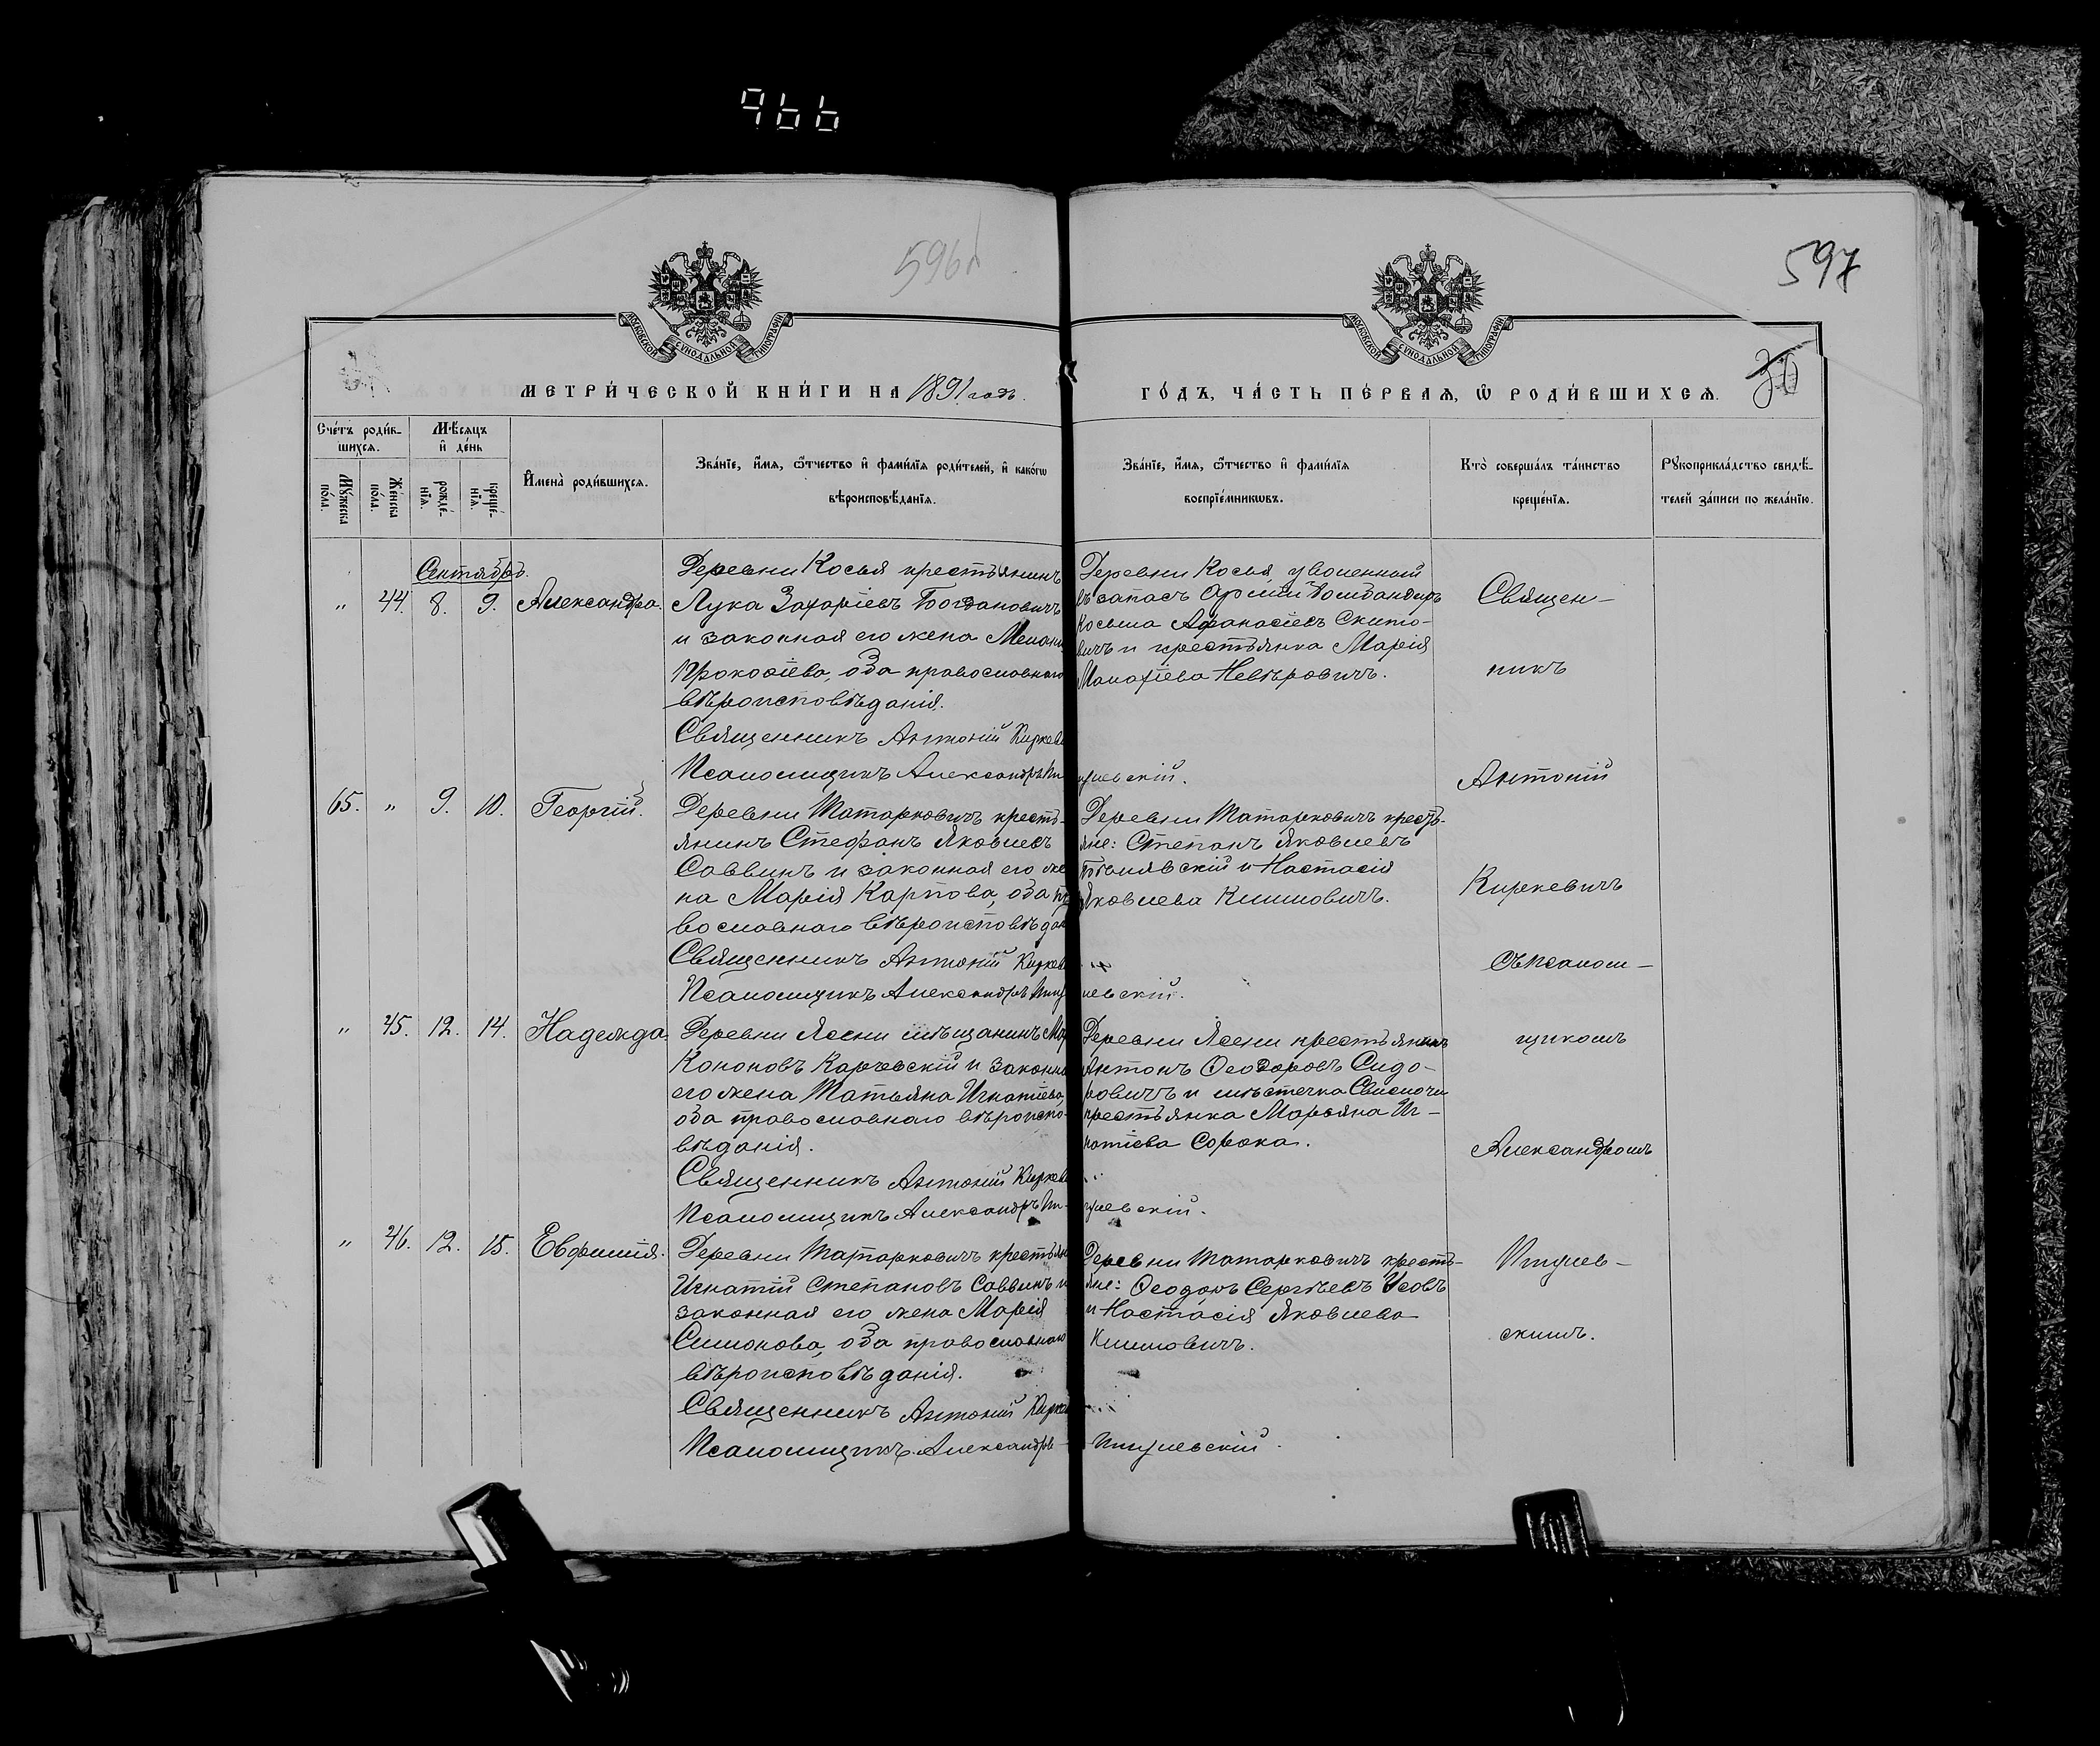 966
596
597
МОСКОВСКОЙ СѴНОДАЛЬНОЙ ТИПОГРАФІИ
МОСКОВСКОЙ СѴНОДАЛЬНОЙ ТИПОГРАФІИ
МЕТРИ́ЧЕСКОЙ КНИ́ГИ НА 1891 годъ.
ГО́ДЪ, ЧА́СТЬ ПЕ́РВАѦ, Ѽ РОДИ́ВШИХСѦ.
Сче́тъ роди́в-
шихсѧ.
Мѣ́сѧцъ
и҆ де́нь
Мꙋ́жеска
по́ла.
Же́нска
по́ла.
рожде́-
нїѧ.
креще́-
нїѧ.
И҆мена̀ роди́вшихсѧ.
Зва́нїе, и҆́мѧ, ѻ҆́тчество и҆ фами́лїѧ роди́телей, и҆ како́гѡ
вѣроисповѣ́данїѧ.
Зва́нїе, и҆́мѧ, ѻ҆́тчество и҆ фами́лїѧ
воспрїе́мникѡвъ.
Кто̀ соверша́лъ та́инство
креще́нїѧ.
Рꙋкоприкла́дство свидѣ́-
телей за́писи по жела́нїю.
Сентябрь.
" 44. 8. 9. Александра.
Деревни Косья крестьянинъ
Лука Захаріевъ Богдановичъ
и законная его жена Мелані
Прокофіева, оба православнаго
вѣроисповѣданія.
Священникъ Антоній Киркеви
Псаломщикъ Александръ Пи
Деревни Косья, уволенный
въ запасъ Арміи бомбандиръ
Косьма Афанасіевъ Скито-
вичъ и крестьянка Марія
Малахіева Невѣровичъ.
чулевскій.
65. " 9. 10. Георгій.
Деревни Татарковичъ кресть-
янинъ Стефанъ Яковлевъ
Саввинъ и законная его же
на Марія Карпова, оба пра
вославнаго вѣроисповѣдан
Священникъ Антоній Киркеви
Псаломщикъ Александръ Пичу
Деревни Татарковичъ кресть-
яне: Степанъ Яковлевъ
и Настасія
Яковлева Климовичъ.
левскій.
" 45. 12. 14. Надежда.
Деревни Ясени мѣщанинъ Мар
Кононовъ Карчевскій и законна
его жена Татьяна Игнатіева,
оба православнаго вѣроиспо-
вѣданія.
Священникъ Антоній Киркеви
Псаломщикъ Александръ Пи-
Деревни Ясени крестьянинъ
Антонъ Ѳеодоровъ Сидо-
ровичъ и мѣстечка Свислочи
крестьянка Марьяна Иг-
натіева Сорока.
чулевскій.
" 46. 12. 15. Евфимія.
Деревни Татарковичъ крестьян
Игнатій Степановъ Саввинъ и
законная его жена Марія
Симонова, оба православнаго
вѣроисповѣданія.
Священникъ Антоній Киркев
Псаломщикъ Александръ
Деревни Татарковичъ кресть-
яне: Ѳеодоръ Сергѣевъ Усовъ
и Настасія Яковлева
Климовичъ.
Пигулевскій.
Священ-
никъ
Антоній
Киркевичъ
съ псалом-
щикомъ
Александромъ
Пигулев-
скимъ.